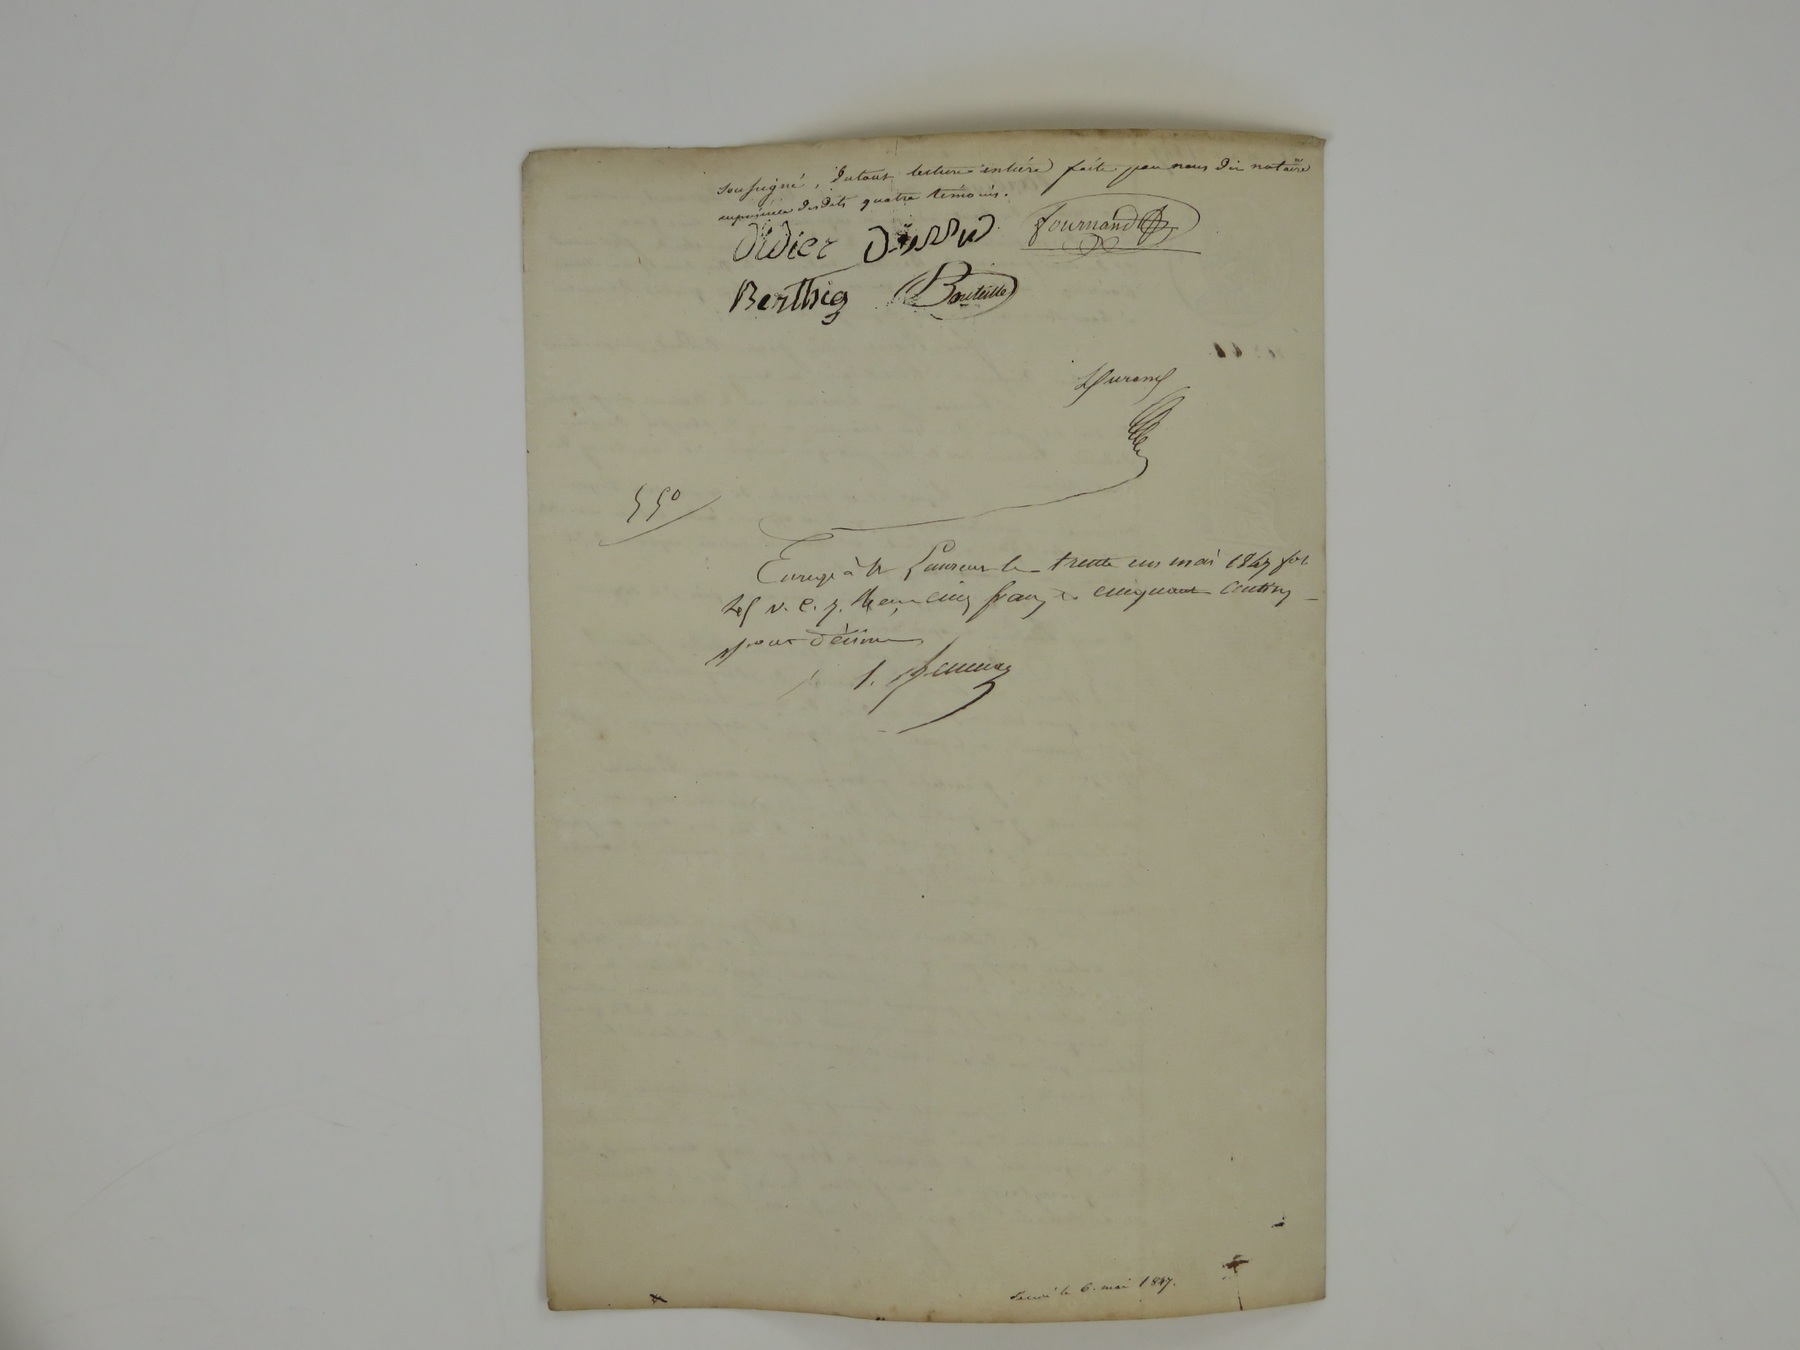 soussigné, du tout lecture entière faite par nous dit notaire
en présence desdits quatre témoins.
Didier Fournand
Berthig Bouteille
Durand
5 50
Enregé à St Laurent le trente un mai 1847 fol
45 v. c. 7. Reçu cinq francs cinquante centimes
pour décime
le 6. mai 1847.